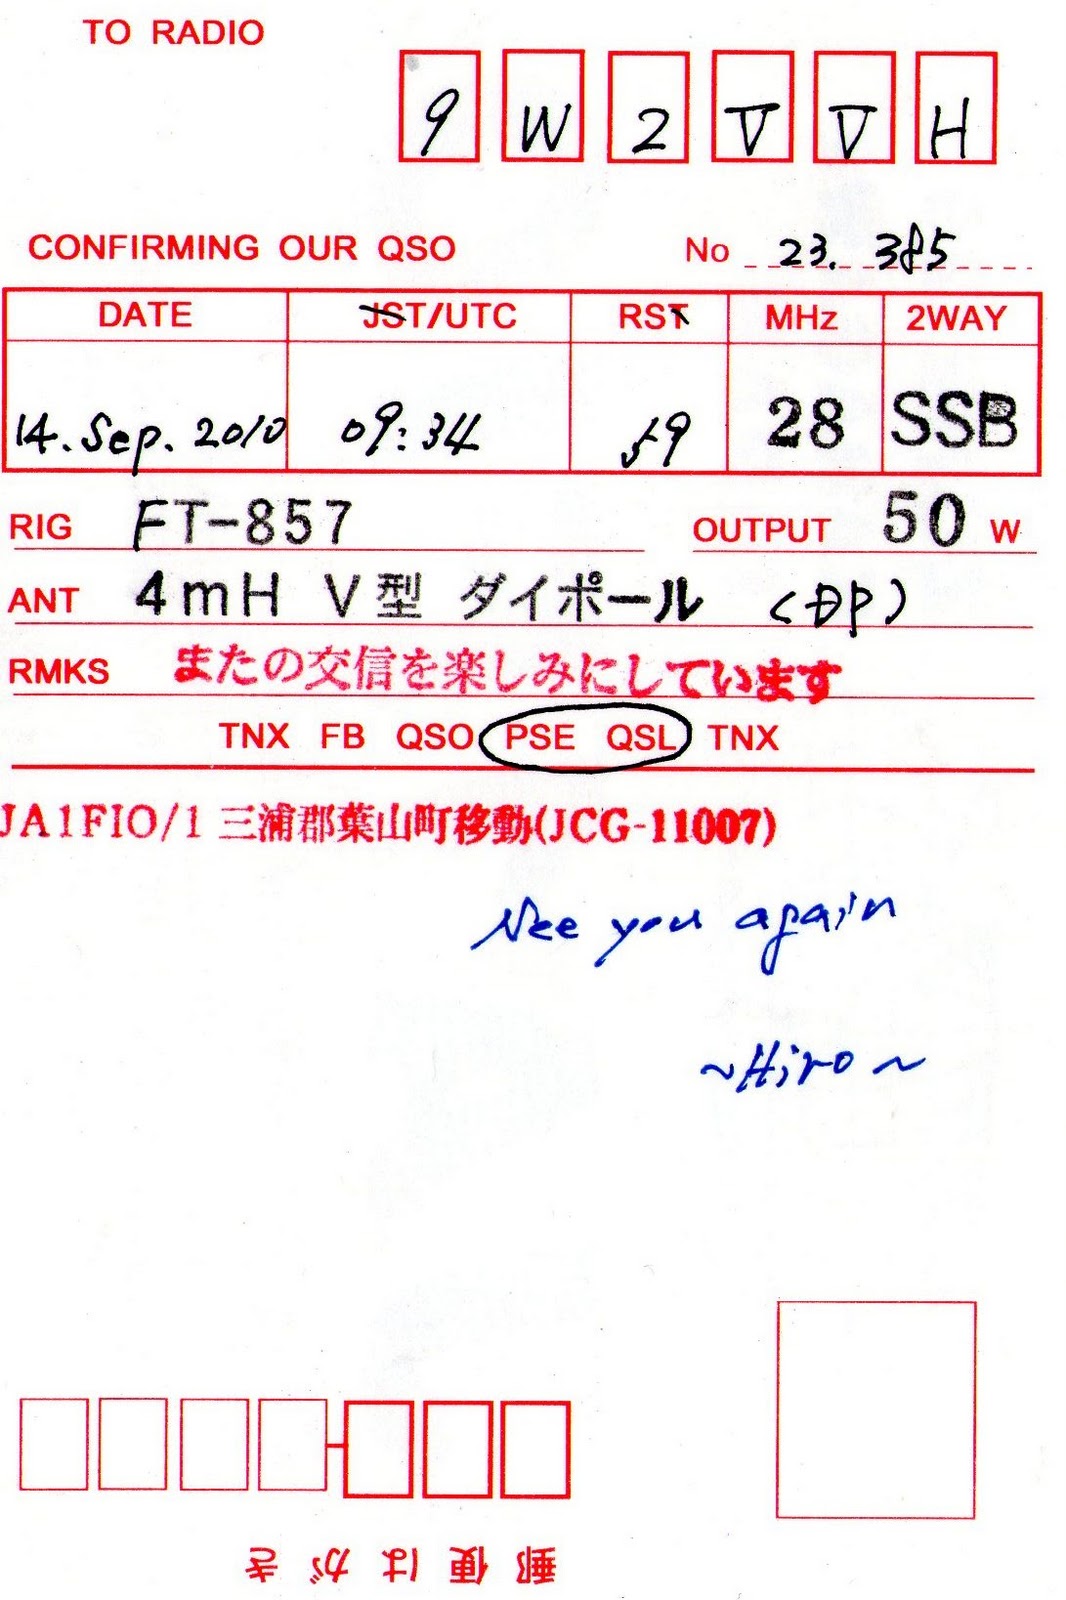 TO RADIO
9W2VVH
CONFIRMING OUR QSO No 23.385
DATE JST/UTC RST MHz 2WAY
14. Sep. 2010 09:34 59 28 SSB
RIG FT-857 OUTPUT 50 W
ANT 4mH V型 ダイポール (DP)
RMKS またの交信を楽しみにしています
TNX FB QSO PSE QSL TNX
JA1FIO/1 三浦郡葉山町移動(JCG-11007)
See you again
~Hiro~
郵便はがき